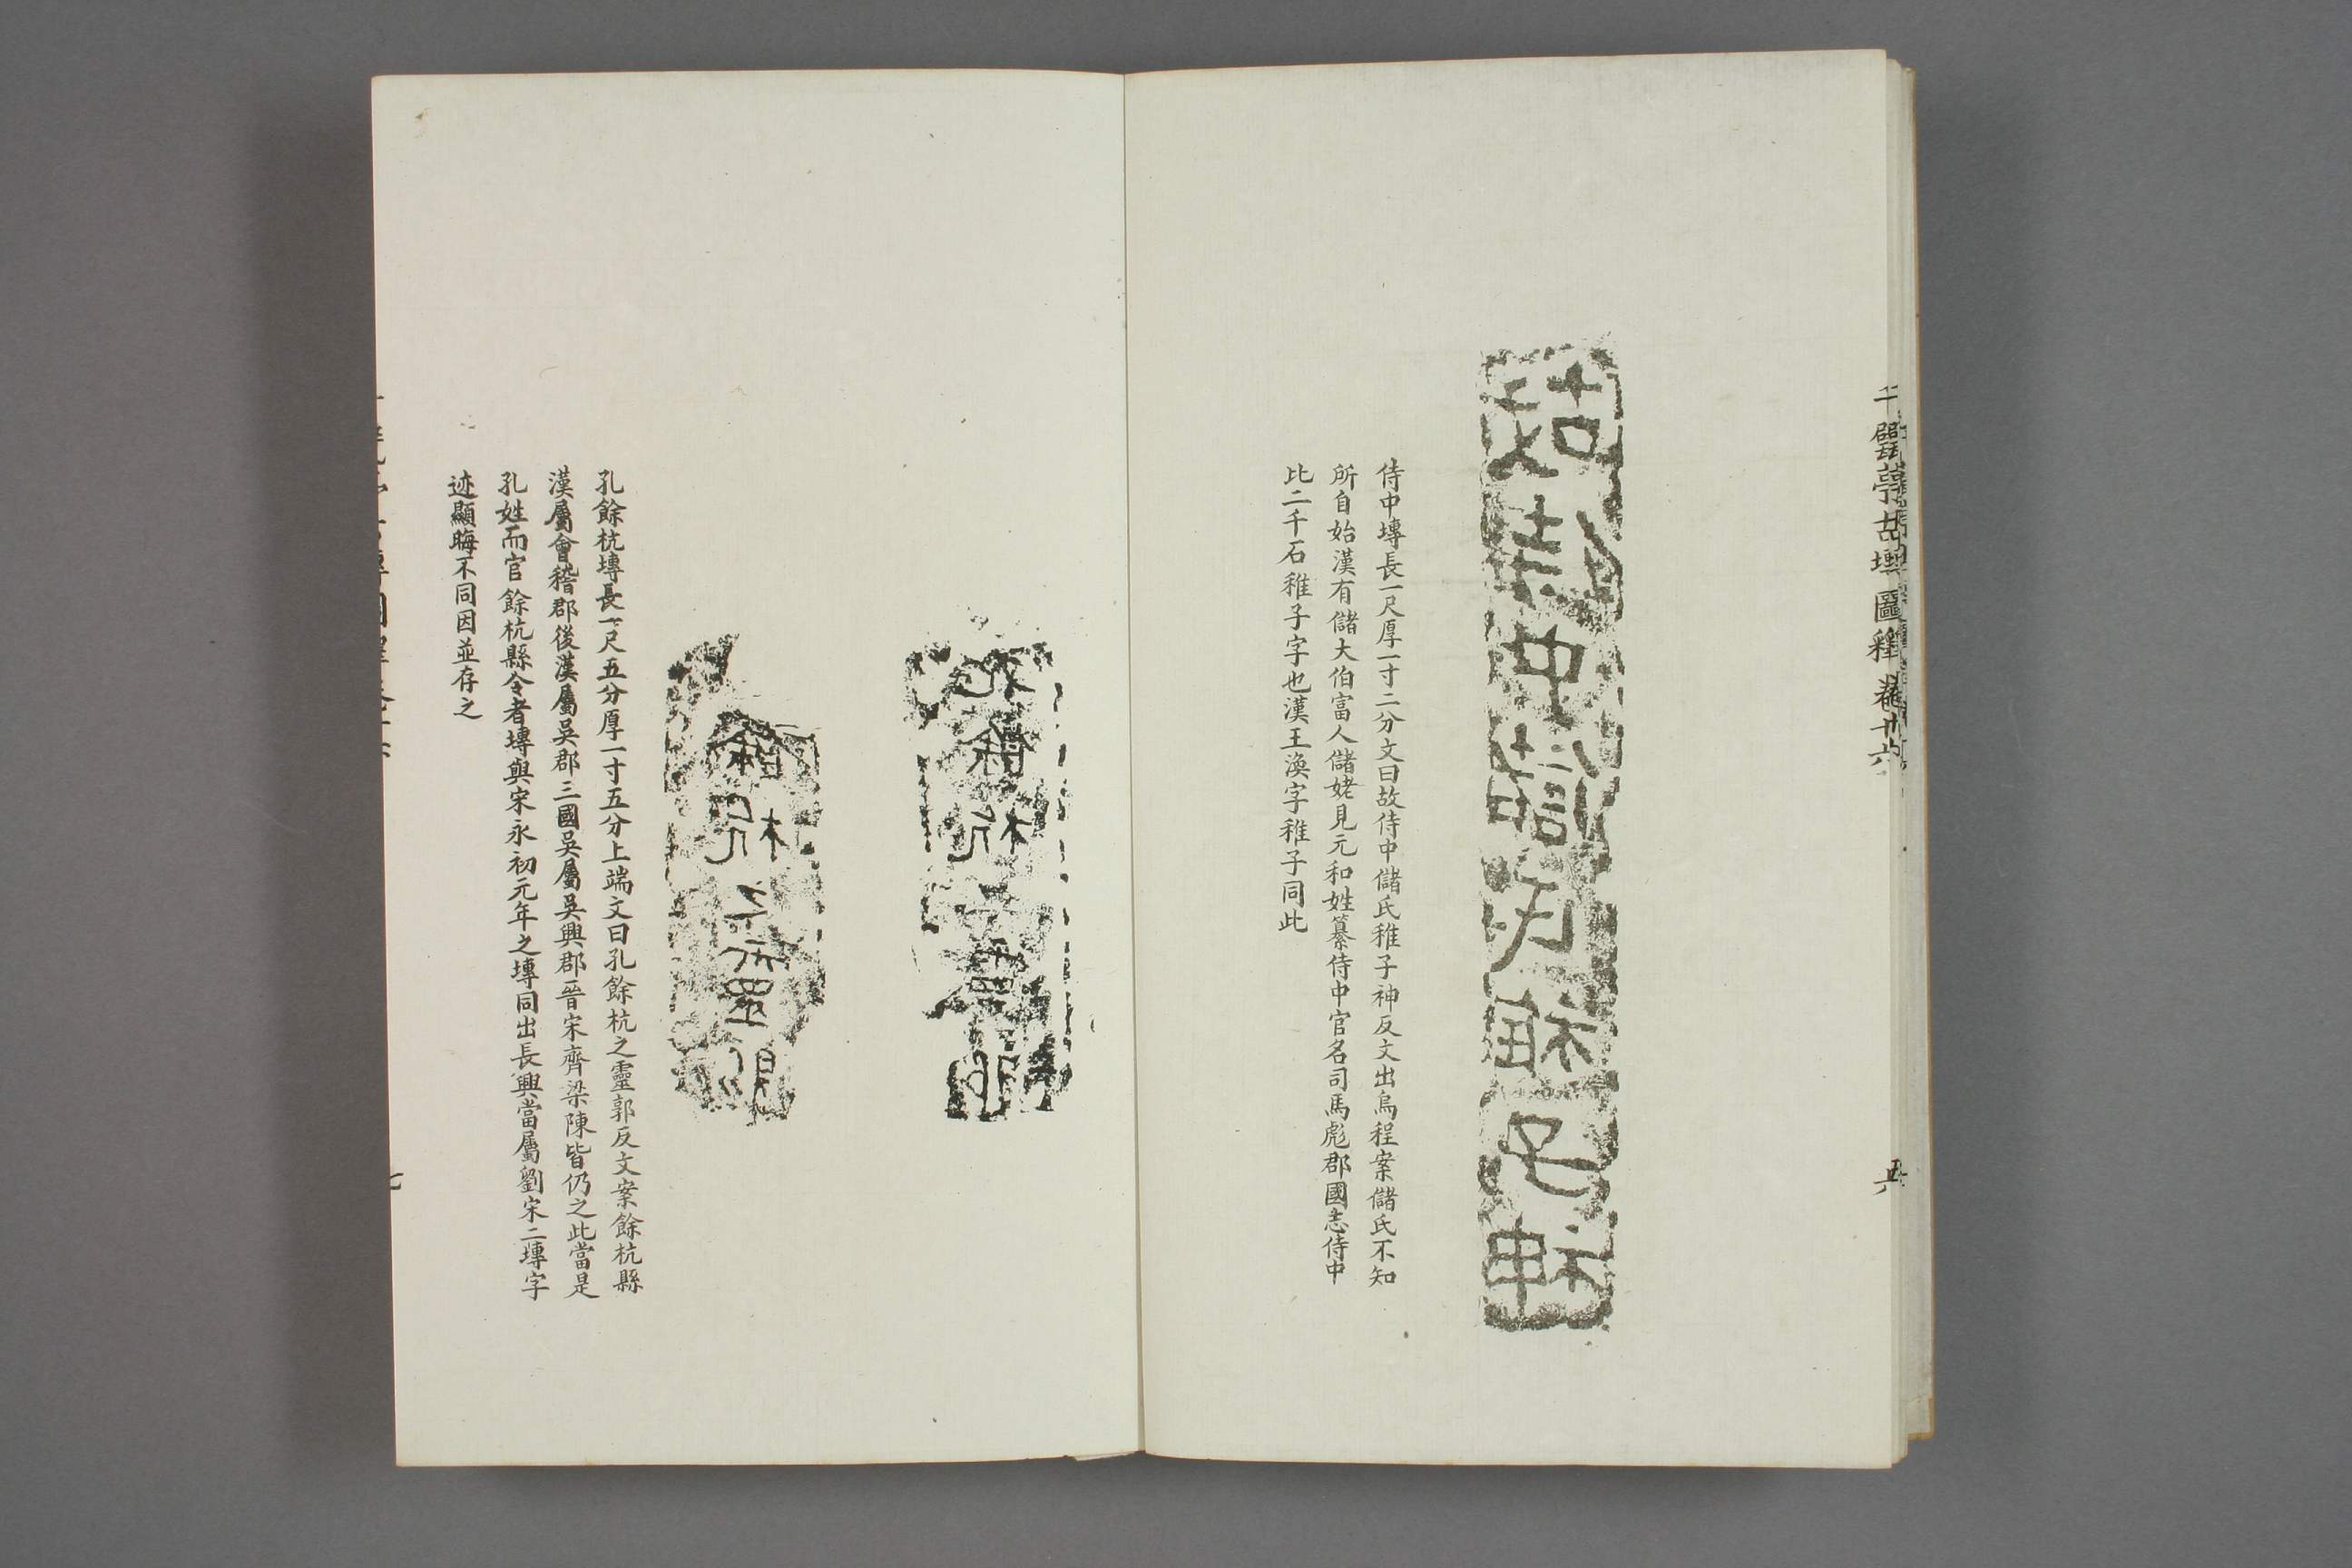 千甓亭古塼圖釋卷十六
六
故侍中儲氏稚子神
侍中塼長一尺厚一寸二分文曰故侍中儲氏稚子神反文出烏程案儲氏不知
所自始漢有儲大伯富人儲姥見元和姓纂侍中官名司馬彪郡國志侍中
比二千石稚子字也漢王渙字稚子同此
孔餘杭塼長一尺五分厚一寸五分上端文曰孔餘杭之靈郭反文案餘杭縣
漢屬會稽郡後漢屬吳郡三國吳屬吳興郡晉宋齊梁陳皆仍之此當是
孔姓而官餘杭縣令者塼與宋永初元年之塼同出長興當屬劉宋二塼字
迹顯晦不同因並存之
七